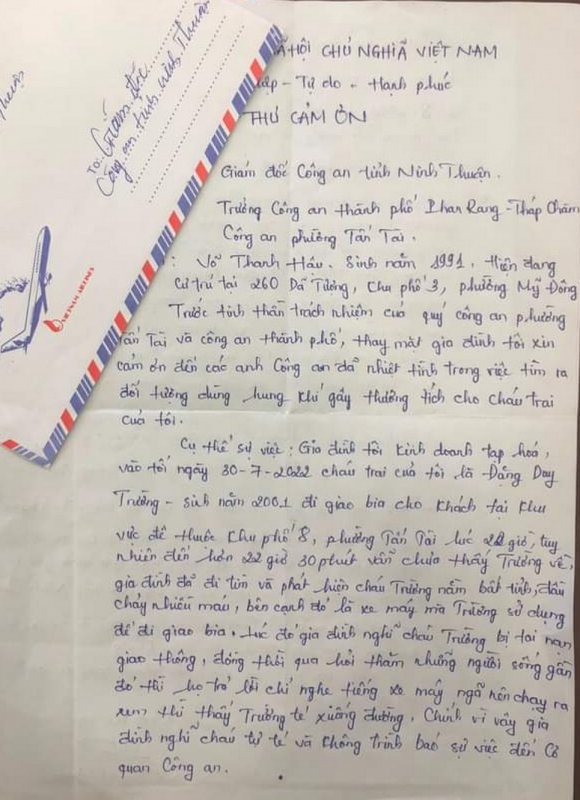 Thuận
To: Giám đốc
Công an tỉnh Ninh Thuận
VIETNAM AIRLINES
HỘI CHỦ NGHĨA VIỆT NAM
lập - Tự do - Hạnh phúc
THƯ CẢM ƠN
Giám đốc Công an tỉnh Ninh Thuận.
Trưởng Công an thành phố Phan Rang - Tháp Chàm
Công an phường Tấn Tài.
: Võ Thanh Hâu. Sinh năm 1991. Hiện đang
cư trú tại 260 Dã Tượng, Khu phố 3, phường Mỹ Đông
Trước tinh thần trách nhiệm của quý công an phường
Tấn Tài và công an thành phố, thay mặt gia đình tôi xin
cảm ơn đến các anh Công an đã nhiệt tình trong việc tìm ra
đối tượng dùng hung khí gây thương tích cho cháu trai
của tôi.
Cụ thể sự việc: Gia đình tôi kinh doanh tạp hóa,
vào tối ngày 30-7-2022 cháu trai của tôi là Đặng Duy
Trường - sinh năm 2001 đi giao bia cho khách tại khu
vực đê thuộc khu phố 8, phường Tấn Tài lúc 22 giờ, tuy
nhiên đến hơn 22 giờ 30 phút vẫn chưa thấy Trường về,
gia đình đã đi tìm và phát hiện cháu Trường nằm bất tỉnh, đầu
chảy nhiều máu, bên cạnh đó là xe máy mà Trường sử dụng
để đi giao bia. Lúc đó gia đình nghĩ cháu Trường bị tai nạn
giao thông, đồng thời qua hỏi thăm những người sống gần
đó thì họ trả lời chỉ nghe tiếng xe máy ngã nên chạy ra
xem thì thấy Trường té xuống đường. Chính vì vậy gia
đình nghĩ cháu tự té và không trình báo sự việc đến Cơ
quan Công an.